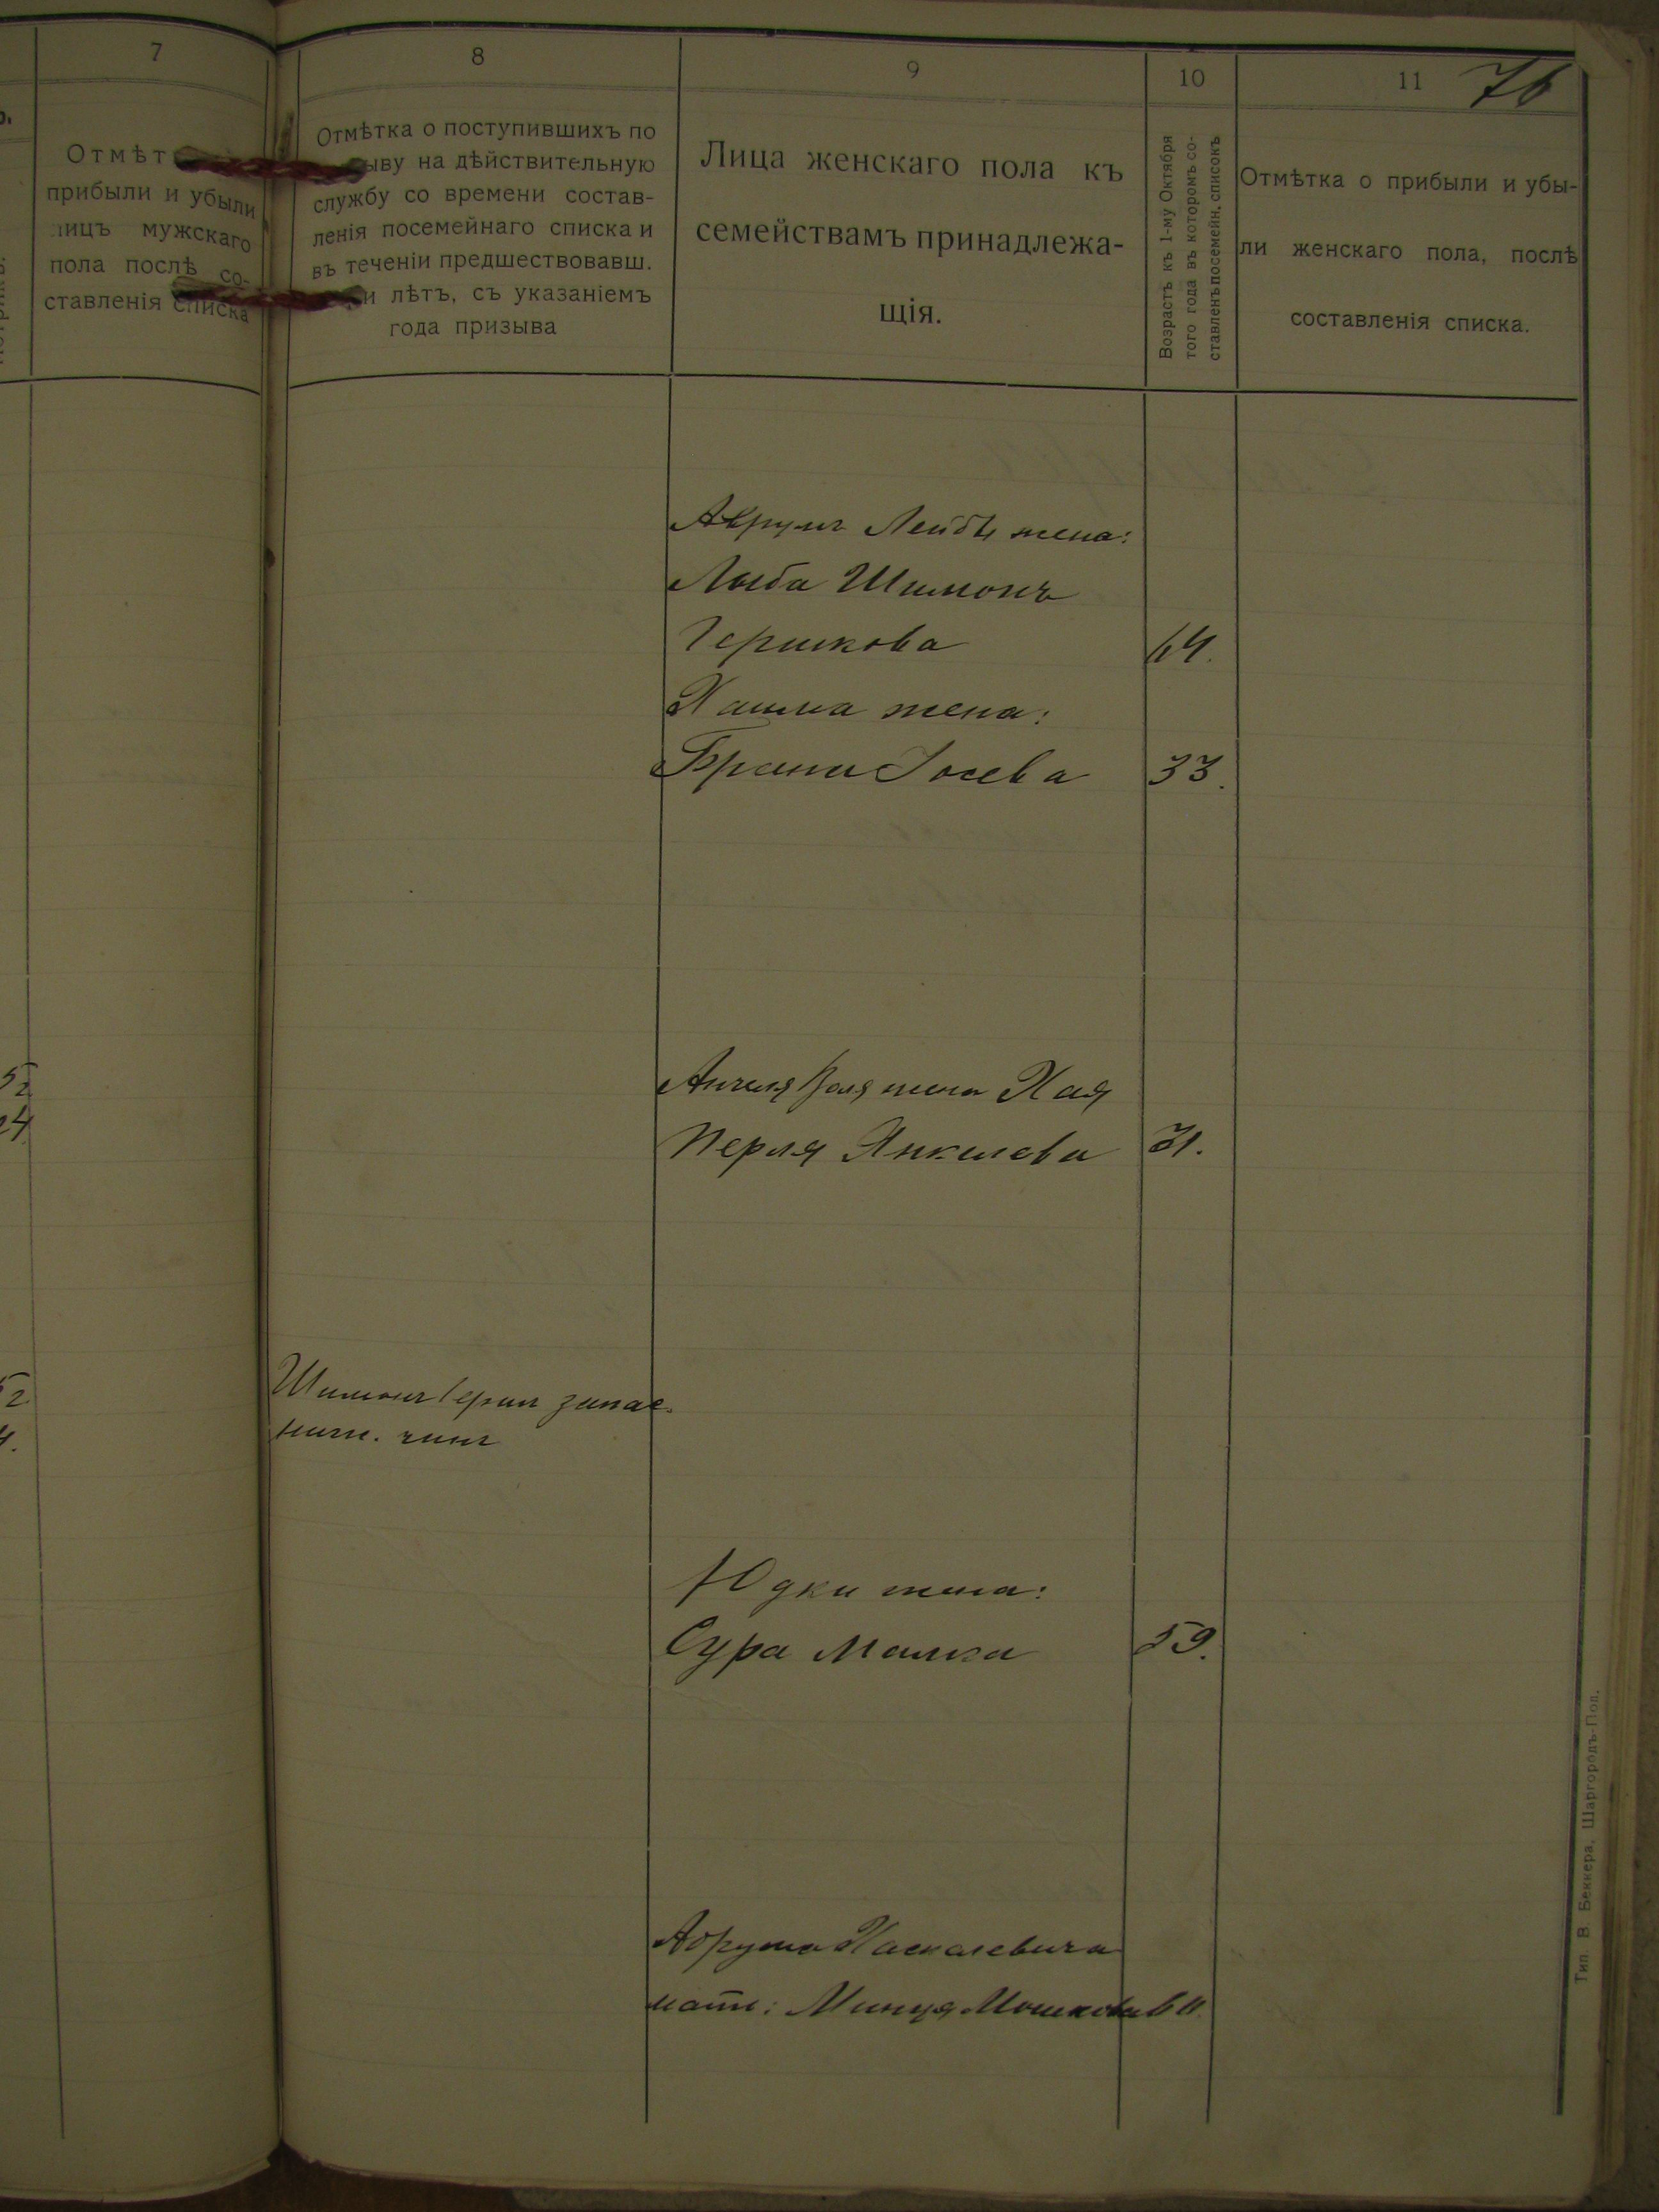 7
Отмѣт
прибыли и убыли
лицъ мужскаго
пола послѣ со-
ставленія списка
8
Отмѣтка о поступившихъ по
ыву на дѣйствительную
службу со времени состав-
ленія посемейнаго списка и
въ теченіи предшествовавш.
и лѣтъ, съ указаніемъ
года призыва
9
Лица женскаго пола къ
семействамъ принадлежа-
щія.
10
Возрастъ къ 1-му Октября
того года въ которомъ со-
ставленъ посемейн. списокъ
11
76
Отмѣтка о прибыли и убы-
ли женскаго пола, послѣ
составленія списка.
Аврумъ Лейбы жена:
Лыба Шимонъ
Гершкова 64.
жена:
Брана Іосева 33.
жена Хая
Перля Янкелева 31.
52
24
52
4.
Шимонъ Герш запас.
нижн. чинъ
Юдки жена:
Сура Малка 59.
Абрума Хаскелевича
мать: Минця Мошкова
Тип. В. Беккера, Шаргородъ-Под.